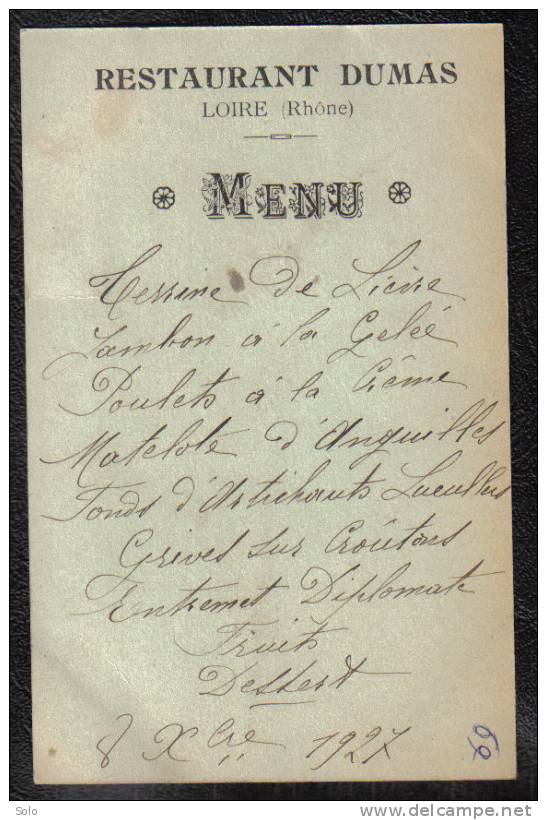 RESTAURANT DUMAS
LOIRE (Rhône)
MENU
Terrine de Lièvre
Jambon à la Gelée
Poulets à la Crème
Matelote d'Anguilles
Fonds d'Artichauts Lucullus
Grives sur Croûtons
Entremet Diplomate
Fruits
Dessert
8 Xbre 1927
69
Solo
www.delcampe.net